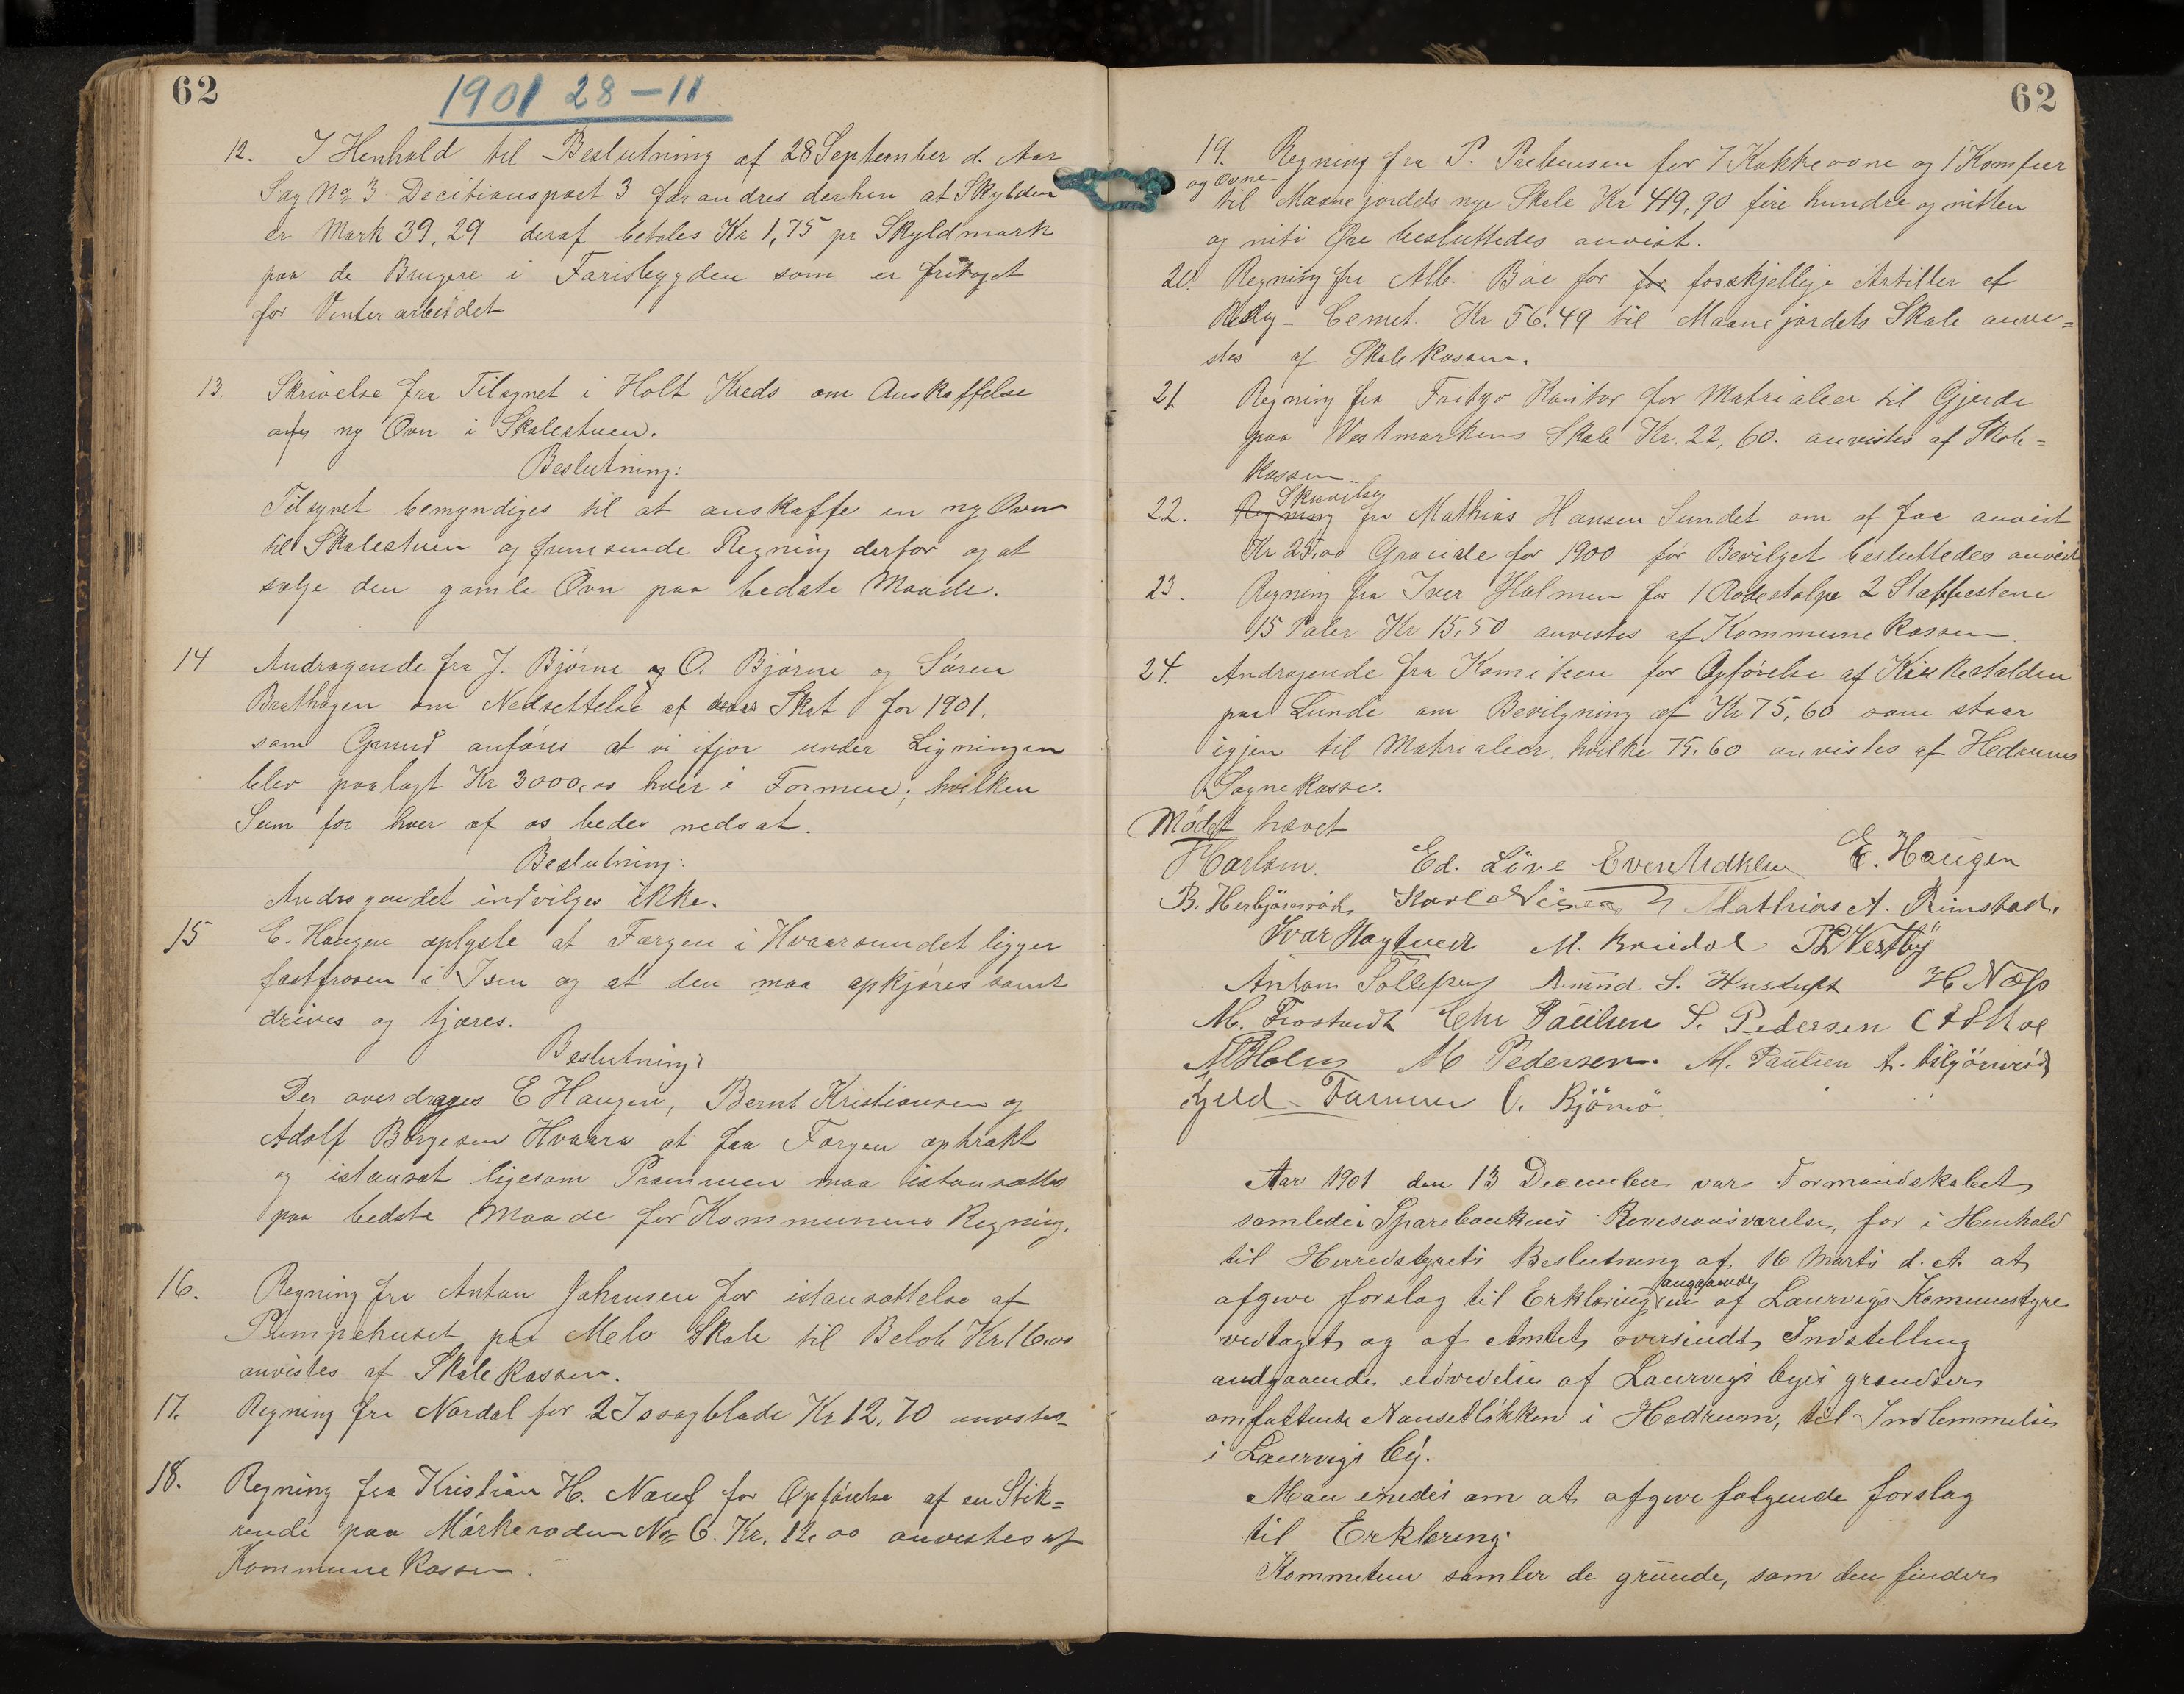 62
1901 28-11
12. I Henhold til Beslutning af 28 September d. Aar
Sag No 3 Decitionspost 3 forandres derhen at Skylden
er Mark 39,29 deraf betales Kr 1,75 pr Skyldmark
paa de Brugere i Farisbygden som er fritaget
for Vinterarbeidet
13. Skrivelse fra Tilsynet i Holt Kreds om Anskaffelse
af ny Ovn i Skolestuen.
Beslutning:
Tilsynet bemyndiges til at anskaffe en ny Ovn
til Skolestuen og fremsende Regning derfor og at
sælge den gamle Ovn paa bedste Maade.
14 Andragende fra J. Bjørne og O. Bjørne og Søren
Brathagen om Nedsettelse af deres Skat for 1901.
som Grund anføres at vi ifjor under Ligningen
blev paalagt Kr 3000,00 hver i Formue; hvilken
Sum for hver af os bedes nedsat.
Beslutning:
Andragendet indvilges ikke.
15 E. Haugen oplyste at Færgen i Hvaarsundet ligger
fastfrosen i Isen og at den maa opkjøres samt
drives og tjæres.
Beslutning:
Der overdrages E Haugen, Bernt Kristiansen og
Adolf Børgesen Hvaara at faa Færgen optrakt
og istansat ligesom Prammen maa istansættes
paa bedste Maade for Kommunens Regning.
16. Regning fra Anton Johansen for istansættelse af
Pumpehuset paa Melø Skole til Beløb Kr 16,00
anvistes af Skolekassen.
17. Regning fra Nordal for 2 Issagblade Kr 12,70 anvistes
18. Regning fra Kristian H. Nauf for Opførelse af en Stik=
rende paa Mørkeroden No 6. Kr. 12,00 anvistes af
Kommunekassen.
62
19. Regning fra P. Prebensen for 7 Kakkeovne og 1 Komfur
og Ovne
til Maanejordets nye Skole Kr 419,90 fire hundre og nitten
og niti Øre besluttedes anvist.
20. Regning fra Alb. Bøe for for forskjellige Artikler af
Cement. Kr 56.49 til Maanejordets Skole anvi=
stes af Skolekassen.
21 Regning fra Fritzø Kontor for Matrialier til Gjerde
paa Vestmarkens Skole Kr. 22,60. anvistes af Skole=
kassen
Skrivelse
22. Regning fra Mathias Hansen Sundet om af faa anvist
Kr 25,00 Graciale for 1900 før Bevilget besluttedes anvist
23. Regning fra Iver Holmen for 1 Rodestolpe 2 Stabbestene
15 Pæler Kr 15,50 anvistes af Kommunekassen.
24. Andragende fra Komiteen for Opførelse af Kirkestalden
paa Lunde om Bevilgning af Kr 75,60 som staar
igjen til Matrialier. hvilke 75,60 anvistes af Hedrums
Sognekasse.
Mødet hævet
HCarlsen. Ed. Löve Even E. Haugen
B. Herbjørnrød Mathias A. Rimstad.
Ivar Hagtvedt M. Bredal Th Vestby
Anton Tollefsen Amund S. H Næss
M. Frostvedt Chr Paulsen S. Pedersen C A S Moe
M Holm M Pedersen. M. Paulsen A. Asbjörnröd
Fjeld Farmen O. Bjömö
Aar 1901 den 13 December var Formandskabet
samlede i Sparebankens Revisionsværelse, for i Henhold
til Herredstyrets Beslutning af 16 Marts d. A. at
angaaende
afgive forslag til Erklæring en af Laurvigs Kommunestyre
vedtaget og af Amtet oversendt Indstilling
andgaaende udvidelse af Laurvigs byes grændser
omfattende Nansetløkken i Hedrum, til Indlemmelse
i Laurvigs by.
Man enedes om at afgive følgende forslag
til Erklæring:
Kommiteen samler de grunde, som den finder